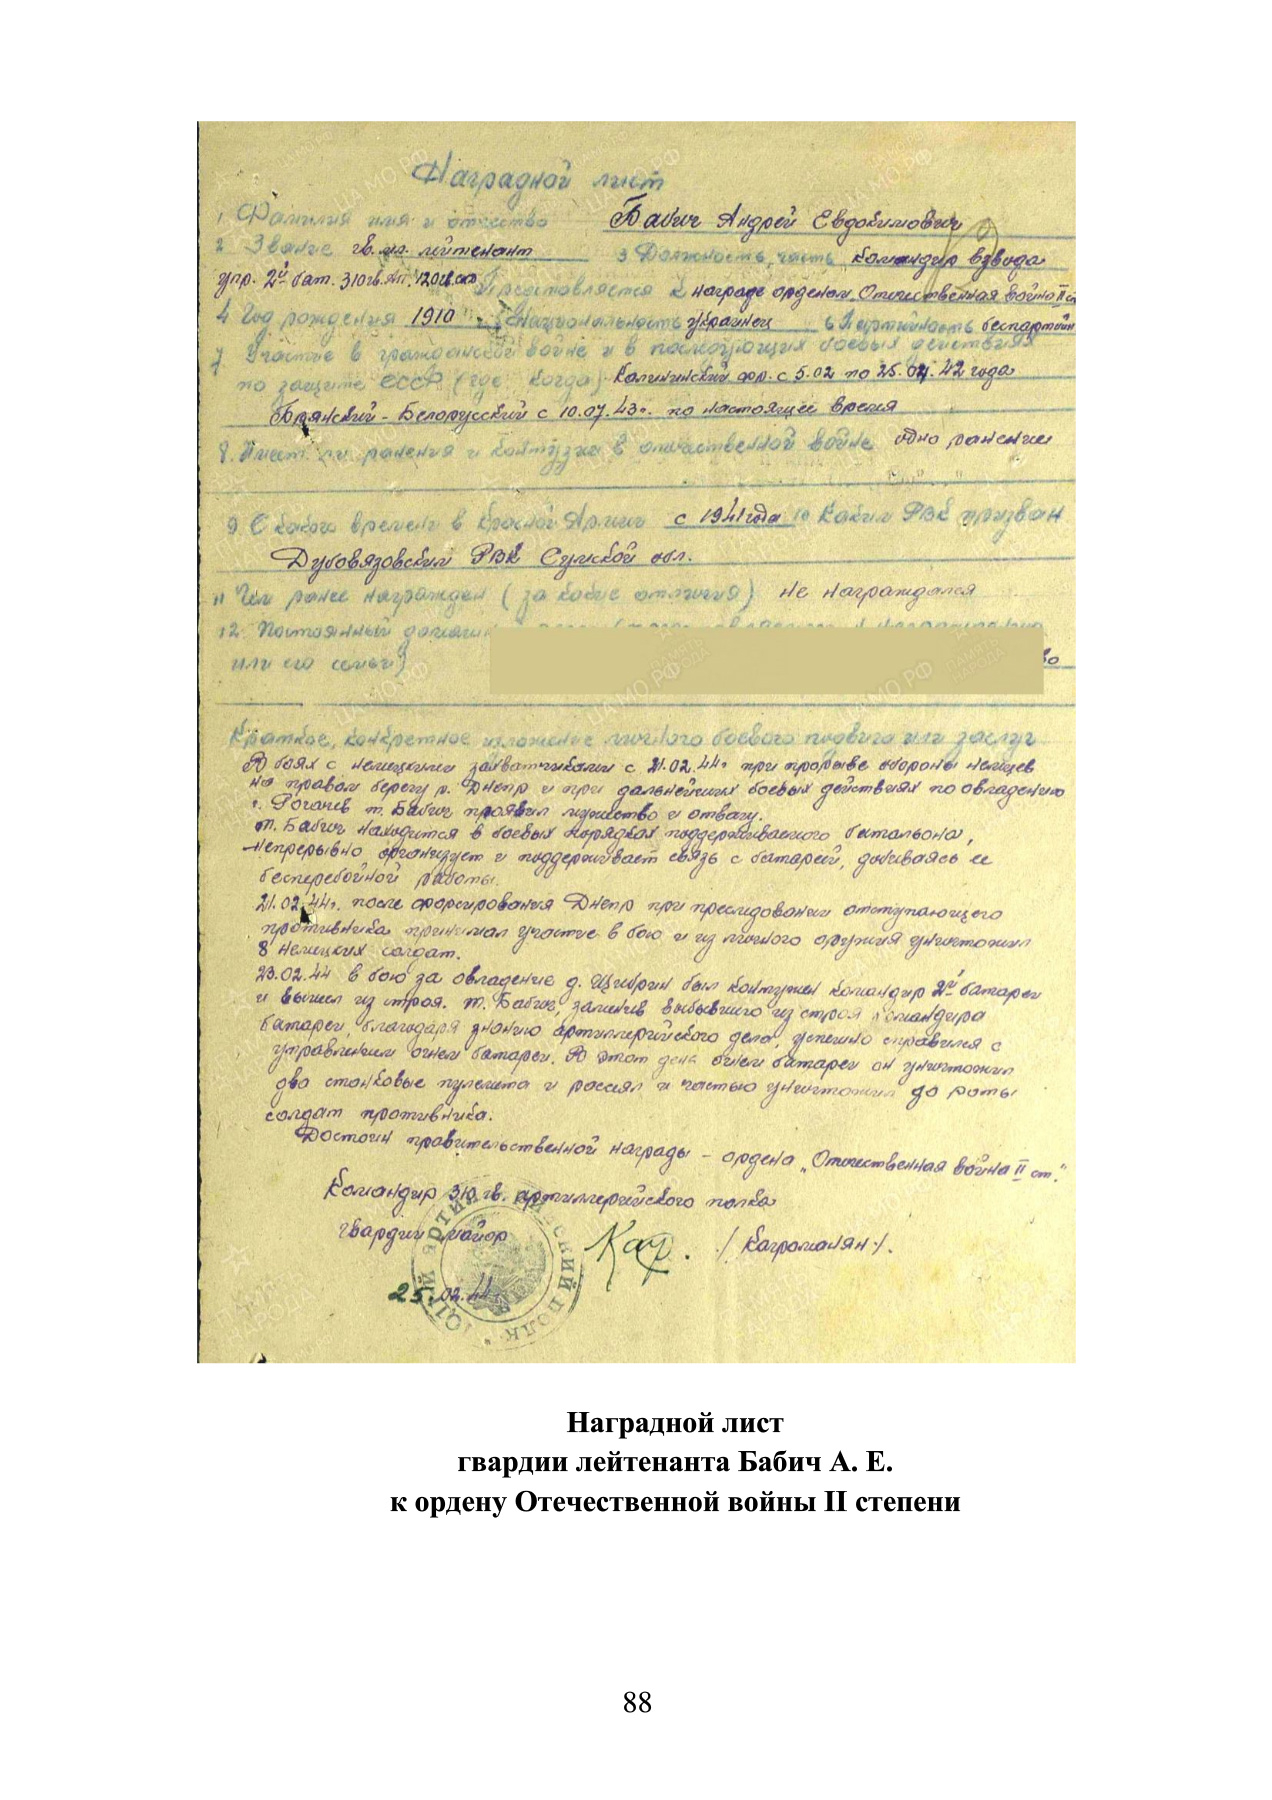 Наградной лист
1. Фамилия имя и отчество Бабич Андрей Евдокимович
2 Звание гв. мл. лейтенант 3 Должность, часть командир взвода
упр. 2й бат. 310 гв. ап. 120 гв. сд Представляется к награде орденом Отечественная война II ст
4 Год рождения 1910 5 Национальность украинец 6 Партийность беспартийн
7 Участие в гражданской войне и в последующих боевых действиях
по защите СССР (где, когда) Калининский фр. с 5.02 по 25.02.42 года
Брянский - Белорусский с 10.07.43г. по настоящее время
8. Имеет ли ранения и контузии в отечественной войне одно ранение
9 С какого времени в Красной Армии с 1941 года 10 Каким РВК призван
Дубовязовским РВК Сумской обл.
11 Чем ранее награжден (за какие отличия) не награждался
12 Постоянный домашний
или его семьи)
Краткое, конкретное изложение личного боевого подвига или заслуг
В боях с немецкими захватчиками с 21.02.44г при прорыве обороны немцев
на правом берегу р. Днепр и при дальнейших боевых действиях по овладению
г. Рогачев т. Бабич проявил мужество и отвагу.
т. Бабич находится в боевых порядках поддерживаемого батальона,
непрерывно организует и поддерживает связь с батареей, добиваясь ее
бесперебойной работы.
21.02.44г. после форсирования Днепр при преследовании отступающего
противника принимал участие в бою и из личного оружия уничтожил
8 немецких солдат.
23.02.44 в бою за овладение д. Щибрин был контужен командир 2й батареи
и вышел из строя. т. Бабич, заменив выбывшего из строя командира
батареи, благодаря знанию артиллерийского дела, успешно справился с
управлением огнем батареи. В этот день огнем батареи он уничтожил
два станковые пулемета и рассеял и частью уничтожил до роты
солдат противника.
Достоин правительственной награды - ордена „Отечественная война II ст."
Командир 310 гв. артиллерийского полка
гвардии майор / Каграманян /.
25.02.44
Наградной лист
гвардии лейтенанта Бабич А. Е.
к ордену Отечественной войны II степени
88